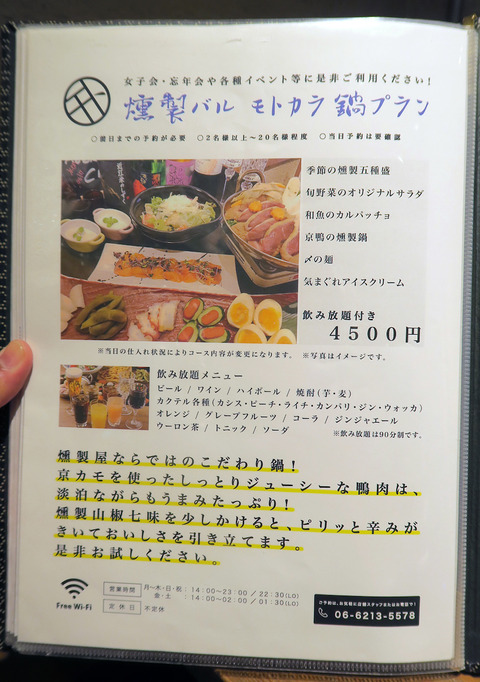 女子会・忘年会や各種イベント等に是非ご利用ください！
燻製バル モトカラ 鍋プラン
○前日までの予約が必要 ○2名様以上〜20名様程度 ○当日予約は要確認
季節の燻製五種盛
旬野菜のオリジナルサラダ
和魚のカルパッチョ
京鴨の燻製鍋
〆の麺
気まぐれアイスクリーム
飲み放題付き
4500円
※当日の仕入れ状況によりコース内容が変更になります。 ※写真はイメージです。
飲み放題メニュー
ビール / ワイン / ハイボール / 焼酎(芋・麦)
カクテル各種(カシス・ピーチ・ライチ・カンパリ・ジン・ウォッカ)
オレンジ / グレープフルーツ / コーラ / ジンジャエール
ウーロン茶 / トニック / ソーダ
※飲み放題は90分制です。
燻製屋ならではのこだわり鍋！
京カモを使ったしっとりジューシーな鴨肉は、
淡泊ながらもうまみたっぷり！
燻製山椒七味を少しかけると、ピリッと辛みが
きいておいしさを引き立てます。
是非お試しください。
Free Wi-Fi
営業時間 月〜木・日・祝：14:00〜23:00 / 22:30(LO)
金・土：14:00〜02:00 / 01:30(LO)
定休日 不定休
ご予約は、お気軽に店舗スタッフまたはお電話で！
06-6213-5578